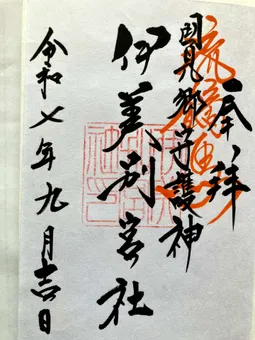 奉拝
国見郷守護神
伊美別宮社
令和七年九月吉日